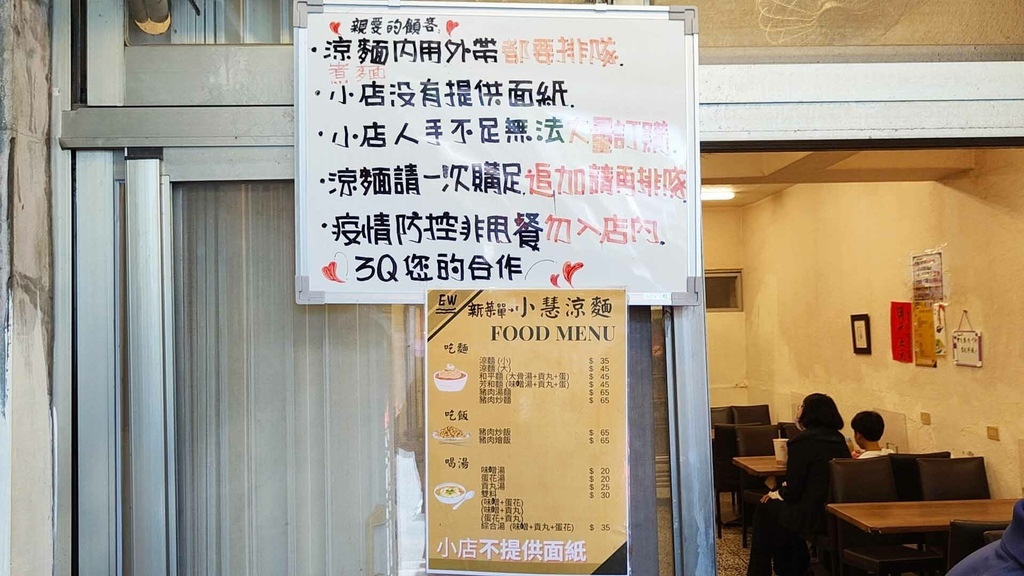 親愛的顧客:
·涼麵內用外帶都要排隊.
煮麵
·小店没有提供面紙.
·小店人手不足無法大量訂購.
·涼麵請一次購足追加請再排隊
·疫情防控非用餐勿入店內.
3Q您的合作
EW 新菜單 小慧涼麵
FOOD MENU
吃麵
涼麵 (小) $ 35
涼麵 (大) $ 45
和平麵 (大骨湯+貢丸+蛋) $ 45
芳和麵 (味噌湯+貢丸+蛋) $ 45
豬肉湯麵 $ 65
豬肉炒麵 $ 65
吃飯
豬肉炒飯 $ 65
豬肉燴飯 $ 65
喝湯
味噌湯 $ 20
蛋花湯 $ 20
貢丸湯 $ 25
雙料 $ 30
(味噌+蛋花)
(味噌+貢丸)
(蛋花+貢丸)
綜合湯 (味噌+貢丸+蛋花) $ 35
小店不提供面紙